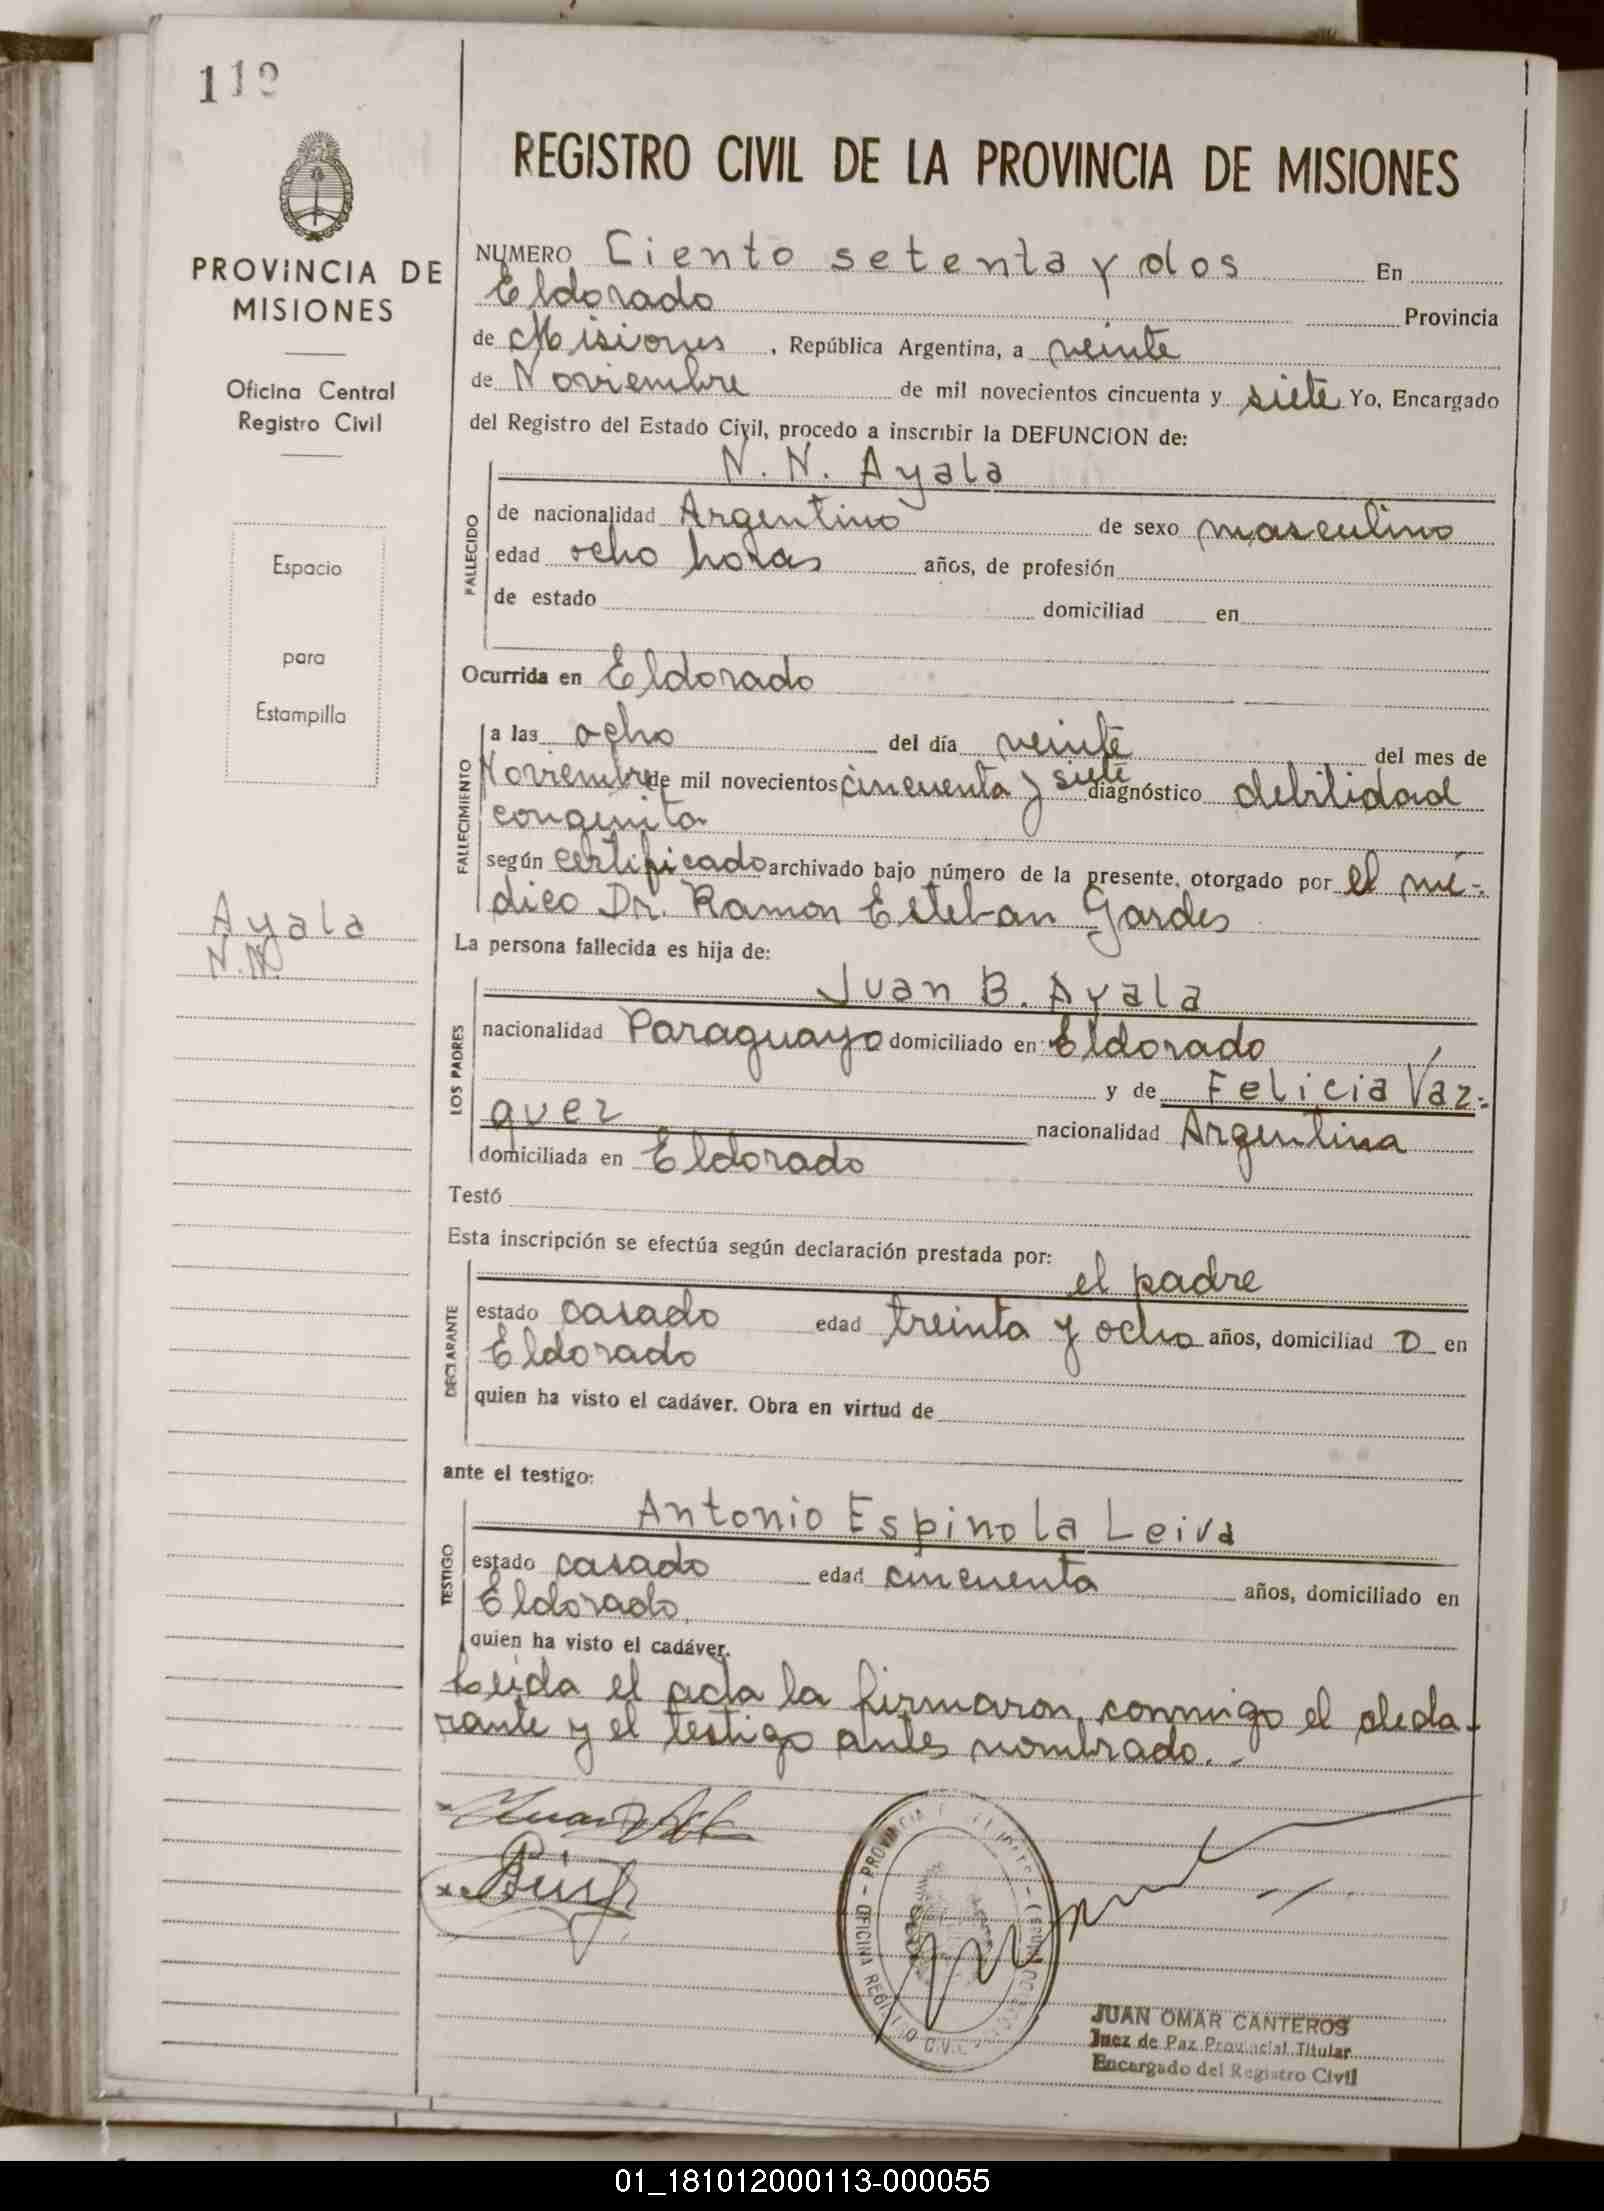 119
PROVINCIA DE
MISIONES
Oficina Central
Registro Civil
Espacio
para
Estampilla
Ayala
N.N.
REGISTRO CIVIL DE LA PROVINCIA DE MISIONES
NUMERO Ciento setenta y dos En
Eldorado Provincia
de Misiones , República Argentina, a veinte
de Noviembre de mil novecientos cincuenta y siete Yo, Encargado
del Registro del Estado Civil, procedo a inscribir la DEFUNCION de:
N. N. Ayala
FALLECIDO
de nacionalidad Argentino de sexo masculino
edad ocho horas años, de profesión
de estado domiciliad en
Ocurrida en Eldorado
FALLECIMIENTO
a las ocho del día veinte del mes de
Noviembre de mil novecientos cincuenta y siete diagnóstico debilidad
congenita
según certificado archivado bajo número de la presente, otorgado por el mé-
dico Dr. Ramon Esteban Gardes
La persona fallecida es hija de:
LOS PADRES
Juan B. Ayala
nacionalidad Paraguayo domiciliado en Eldorado
y de Felicia Vaz-
quez nacionalidad Argentina
domiciliada en Eldorado
Testó
Esta inscripción se efectúa según declaración prestada por:
DECLARANTE
el padre
estado casado edad treinta y ocho años, domiciliad o en
Eldorado
quien ha visto el cadáver. Obra en virtud de
ante el testigo:
TESTIGO
Antonio Espinola Leiva
estado casado edad cincuenta años, domiciliado en
Eldorado
quien ha visto el cadáver.
Leida el acta la firmaron conmigo el decla-
rante y el testigo antes nombrado.-
OFICINA REGISTRO CIVIL - PROVINCIA
JUAN OMAR CANTEROS
Juez de Paz Provincial Titular
Encargado del Registro Civil
01_181012000113-000055